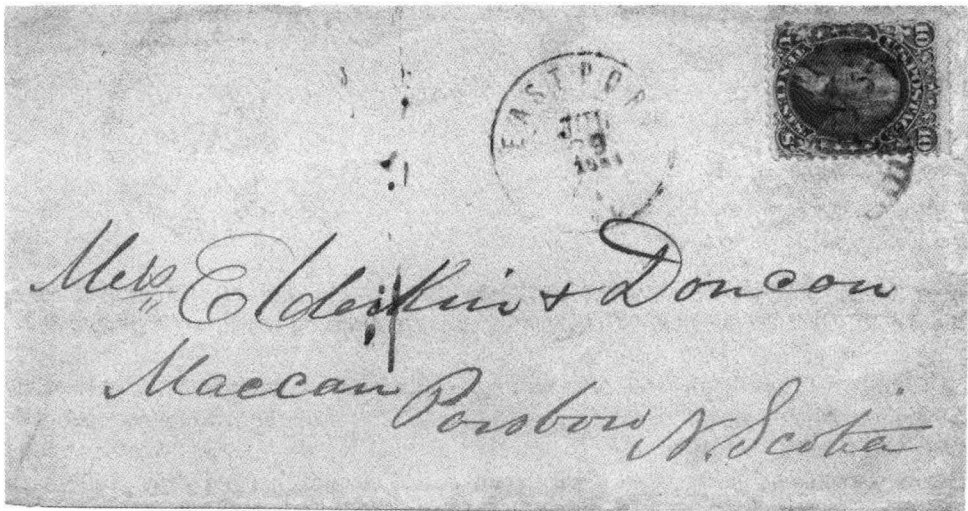 EASTPOR
JUL
Mess Elderkin & Doncan
Maccan Porsboro N. Scotia